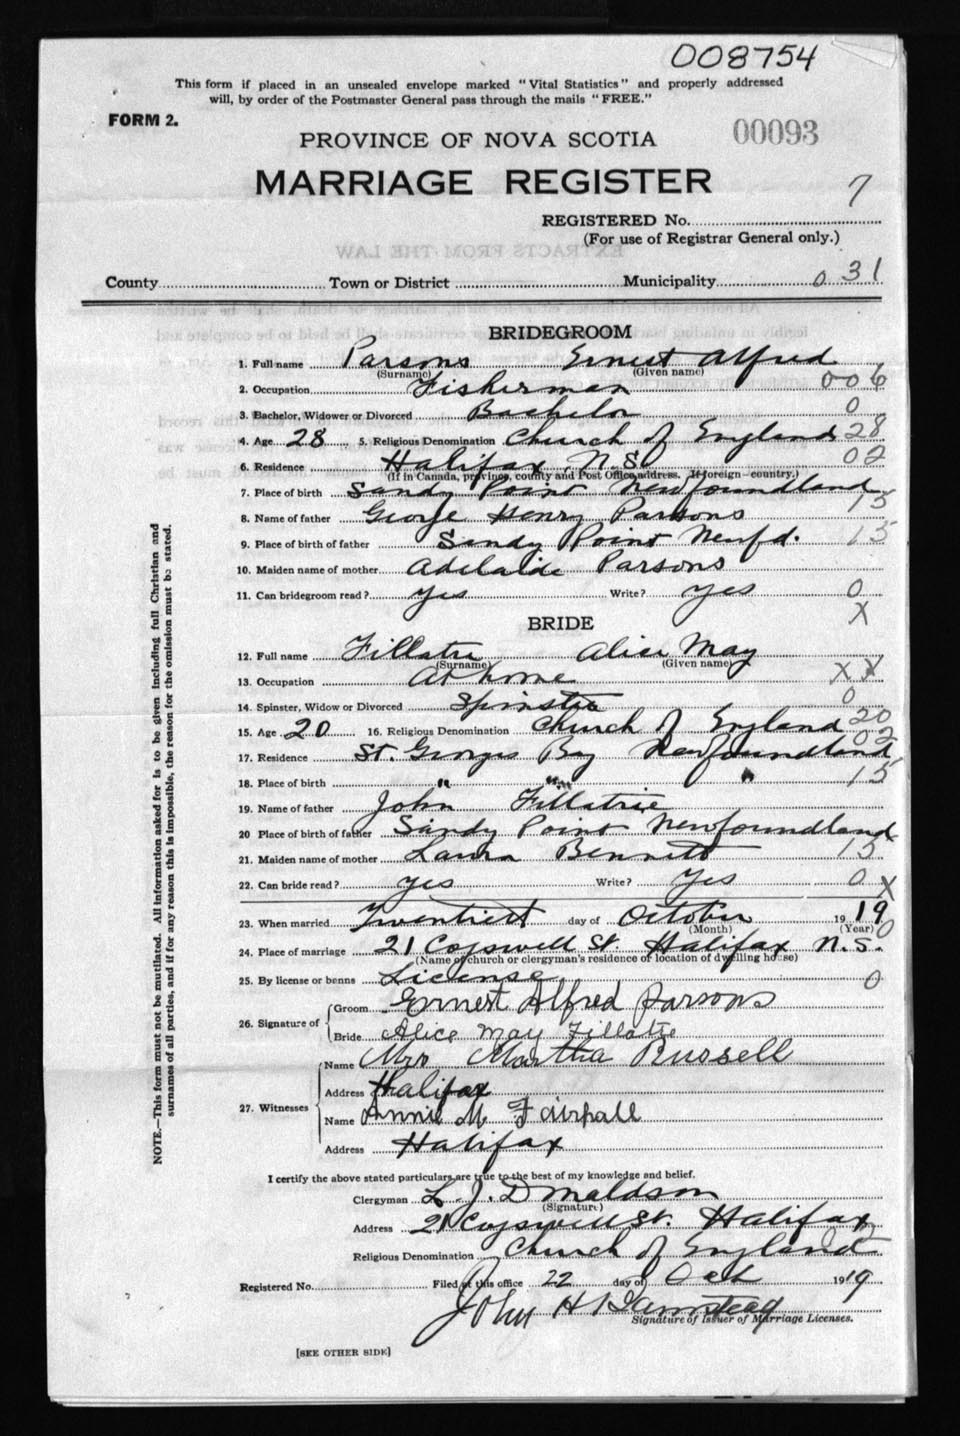 008754
This form if placed in an unsealed envelope marked "Vital Statistics" and properly addressed
will, by order of the Postmaster General pass through the mails "FREE."
FORM 2.
PROVINCE OF NOVA SCOTIA
00093
MARRIAGE REGISTER
7
REGISTERED No.
(For use of Registrar General only.)
County Town or District Municipality 0 31
BRIDEGROOM
1. Full name Parsons Ernest Alfred
(Surname) (Given name)
2. Occupation Fisherman 006
3. Bachelor, Widower or Divorced Bachelor 0
4. Age 28 5. Religious Denomination Church of England 28
6. Residence Halifax, N.S. 02
(If in Canada, province, county and Post Office address. If foreign—country.)
7. Place of birth Sandy Point Newfoundland
15
8. Name of father George Henry Parsons
9. Place of birth of father Sandy Point Newfd. 15
10. Maiden name of mother Adelaide Parsons
11. Can bridegroom read? yes Write? yes 0
X
BRIDE
12. Full name Fillatre Alice May
(Surname) (Given name)
13. Occupation At home X X
14. Spinster, Widow or Divorced Spinster 0
15. Age 20 16. Religious Denomination Church of England 20
02
17. Residence St. Georges Bay Newfoundland
18. Place of birth " " " 15
19. Name of father John Fillatrie
20 Place of birth of father Sandy Point Newfoundland
21. Maiden name of mother Laura Bennett 15
22. Can bride read? yes Write? Yes 0
X
23. When married Twentiest day of October 1919
(Month) (Year) 0
24. Place of marriage 21 Cogswell St. Halifax N.S.
(Name of church or clergyman's residence or location of dwelling house)
25. By license or banns License 0
26. Signature of
Groom Ernest Alfred Parsons
Bride Alice May Fillatre
27. Witnesses
Name Mrs Martha Russell
Address Halifax
Name Annie M Fairhall
Address Halifax
I certify the above stated particulars are true to the best of my knowledge and belief.
Clergyman L. J. Donaldson
(Signature)
Address 21 Cogswell St. Halifax
Religious Denomination Church of England
Registered No. Filed at this office 22 day of Oct 1919
John H
Signature of Issuer of Marriage Licenses.
[SEE OTHER SIDE]
NOTE.—This form must not be mutilated. All information asked for is to be given including full Christian and
surnames of all parties, and if for any reason this is impossible, the reason for the omission must be stated.
EXTRACTS FROM THE LAW